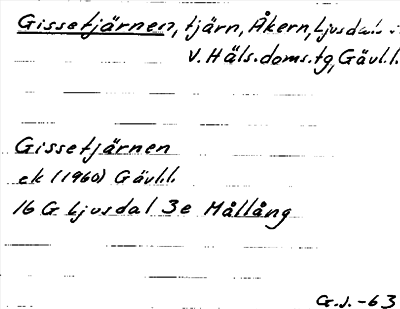 Gissetjärnen, tjärn, Åkern, Ljusdals
V. Häls.doms.tg, Gävl.l.
Gissetjärnen
ek (1960) Gävl.l.
16 G Ljusdal 3e Mållång
G.J. -63